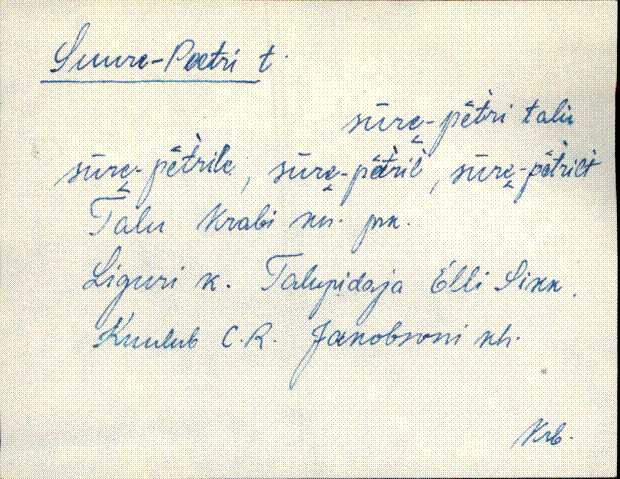 Suure-Peetri t.
sūre̬-pētri talu
sūre̬-pētrile, sūre̬-pētril, sūre̬-pētrilt
Talu Krabi kn. prk.
Liguri k. Talupidaja Elli Sikk.
Kuulub C.R. Jakobsoni kh.
Krb.